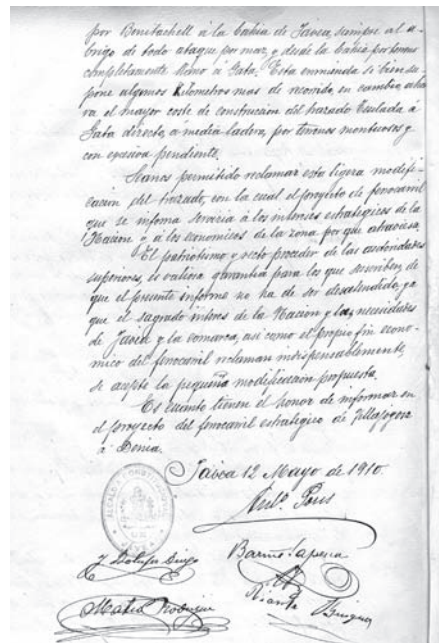 por Benitachell á la bahia de Jávea, siempre al a-
brigo de todo ataque por mar, y desde la bahia por terreno
completamente llano á Gata. Esta enmienda si bien su-
pone algunos Kilometros mas de recorrido, en cambio, aho-
rra el mayor coste de construccion del trazado Teulada á
Gata directo, á media ladera, por terrenos montuosos y
con excesiva pendiente.
Séanos permitido reclamar esta ligera modifi-
cación del trazado, con la cual el proyecto de ferrocarril
que se informa serviria á los intereses estrategicos de la
Nacion y á los economicos de la zona por que atraviesa.
El patriotismo y recto proceder de las autoridades
superiores, es valiosa garantia para los que suscriben, de
que el presente informe no ha de ser desatendido, ya
que el sagrado interes de la Nacion y las necesidades
de Jávea y la comarca, asi como el propio fin econo-
mico del ferrocarril reclaman indispensablemente,
se acepte la pequeña modificación propuesta.
Es cuanto tienen el honor de informar en
el proyecto del ferrocarril estrategico de Villajoyosa
á Denia.
Jávea 12 Mayo de 1910.
ALCALDIA CONSTITUCIONAL